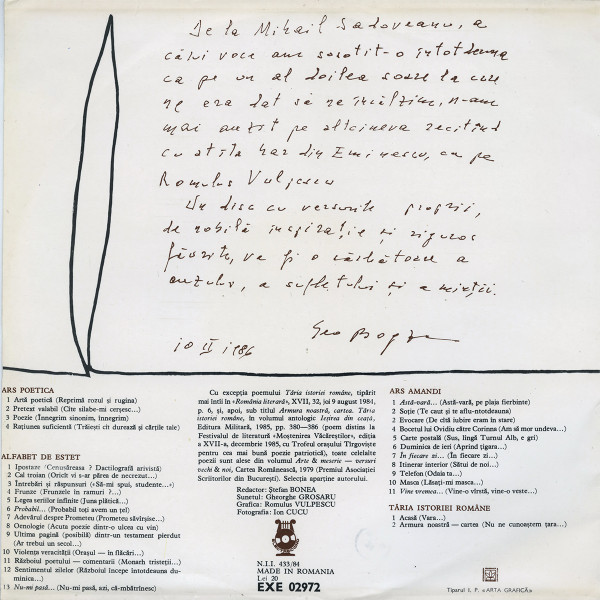 De la Mihail Sadoveanu, a
cărui voce am socotit-o întotdeauna
ca pe un al doilea soare la care
ne era dat să ne încălzim, n-am
mai auzit pe altcineva recitind
cu atîta har din Eminescu, ca pe
Romulus Vulpescu
Un disc cu versurile proprii,
de nobilă inspirație și riguros
făurite, va fi o sărbătoare a
auzului, a sufletului și a minții.
10 II 1986
Geo Bogza
ARS POETICA
1 Artă poetică (Reprimă rozul și rugina)
2 Pretext valabil (Cîte silabe-mi cerșesc...)
3 Poezie (Înnegrim sinonim, înnegrim)
4 Rațiunea suficientă (Trăiești cît durează și cărțile tale)
ALFABET DE ESTET
1 Ipostare (Cenușăreasa ? Dactilografă arivistă)
2 Cal troian (Oricît vi s-ar părea de necrezut...)
3 Întrebări și răspunsuri («Să-mi spui, studente...»)
4 Frunze (Frunzele în ramuri ?...)
5 Legea seriilor infinite (Luna plăvică...)
6 Probabil... (Probabil toți avem un țel)
7 Adevărul despre Prometeu (Prometeu săvîrșise...)
8 Oenologie (Acuta poezie dintr-o ulcea cu vin)
9 Ultima pagină (posibilă) dintr-un testament pierdut
(Ar trebui un secol...)
10 Violența veracității (Orașul — în flăcări...)
11 Războiul poetului — comentarii (Monarh tristeții...)
12 Sentimentul zilelor (Războiul începe întotdeauna du-
minica...)
13 Nu-mi pasă... (Nu-mi pasă, azi, că-mbătrînesc)
Cu excepția poemului Tăria istoriei române, tipărit
mai întîi în «România literară», XVII, 32, joi 9 august 1984,
p. 6, și, apoi, sub titlul Armura noastră, cartea. Tăria
istoriei române, în volumul antologic Ieșirea din ceață,
Editura Militară, 1985, pp. 380—386 (poem distins la
Festivalul de literatură «Moștenirea Văcăreștilor», ediția
a XVII-a, decembrie 1985, cu Trofeul orașului Tîrgoviște
pentru cea mai bună poezie patriotică), toate celelalte
poezii sunt alese din volumul Arte & meserie — versuri
vechi & noi, Cartea Românească, 1979 (Premiul Asociației
Scriitorilor din București). Selecția aparține autorului.
Redactor: Ștefan BONEA
Sunetul: Gheorghe GROSARU
Grafica: Romulus VULPESCU
Fotografia: Ion CUCU
N.I.I. 433/84
MADE IN ROMANIA
Lei 20
EXE 02972
ARS AMANDI
1 Astă-vară... (Astă-vară, pe plaja fierbinte)
2 Soție (Te caut și te aflu-ntotdeauna)
3 Evocare (De cîtă iubire eram în stare)
4 Bocetul lui Ovidiu către Corinna (Am să mor undeva...)
5 Carte poștală (Sus, lîngă Turnul Alb, e gri)
6 Duminica de ieri (Aprind țigara...)
7 În fiecare zi... (În fiecare zi...)
8 Itinerar interior (Sătul de noi...)
9 Telefon (Odaia ta...)
10 Masca (Lăsați-mi masca...)
11 Vine vremea... (Vine-o vîrstă, vine-o veste...)
TĂRIA ISTORIEI ROMÂNE
1 Acasă (Vara...)
2 Armura noastră — cartea (Nu ne cunoștem țara...)
Tiparul I. P. «ARTA GRAFICĂ»